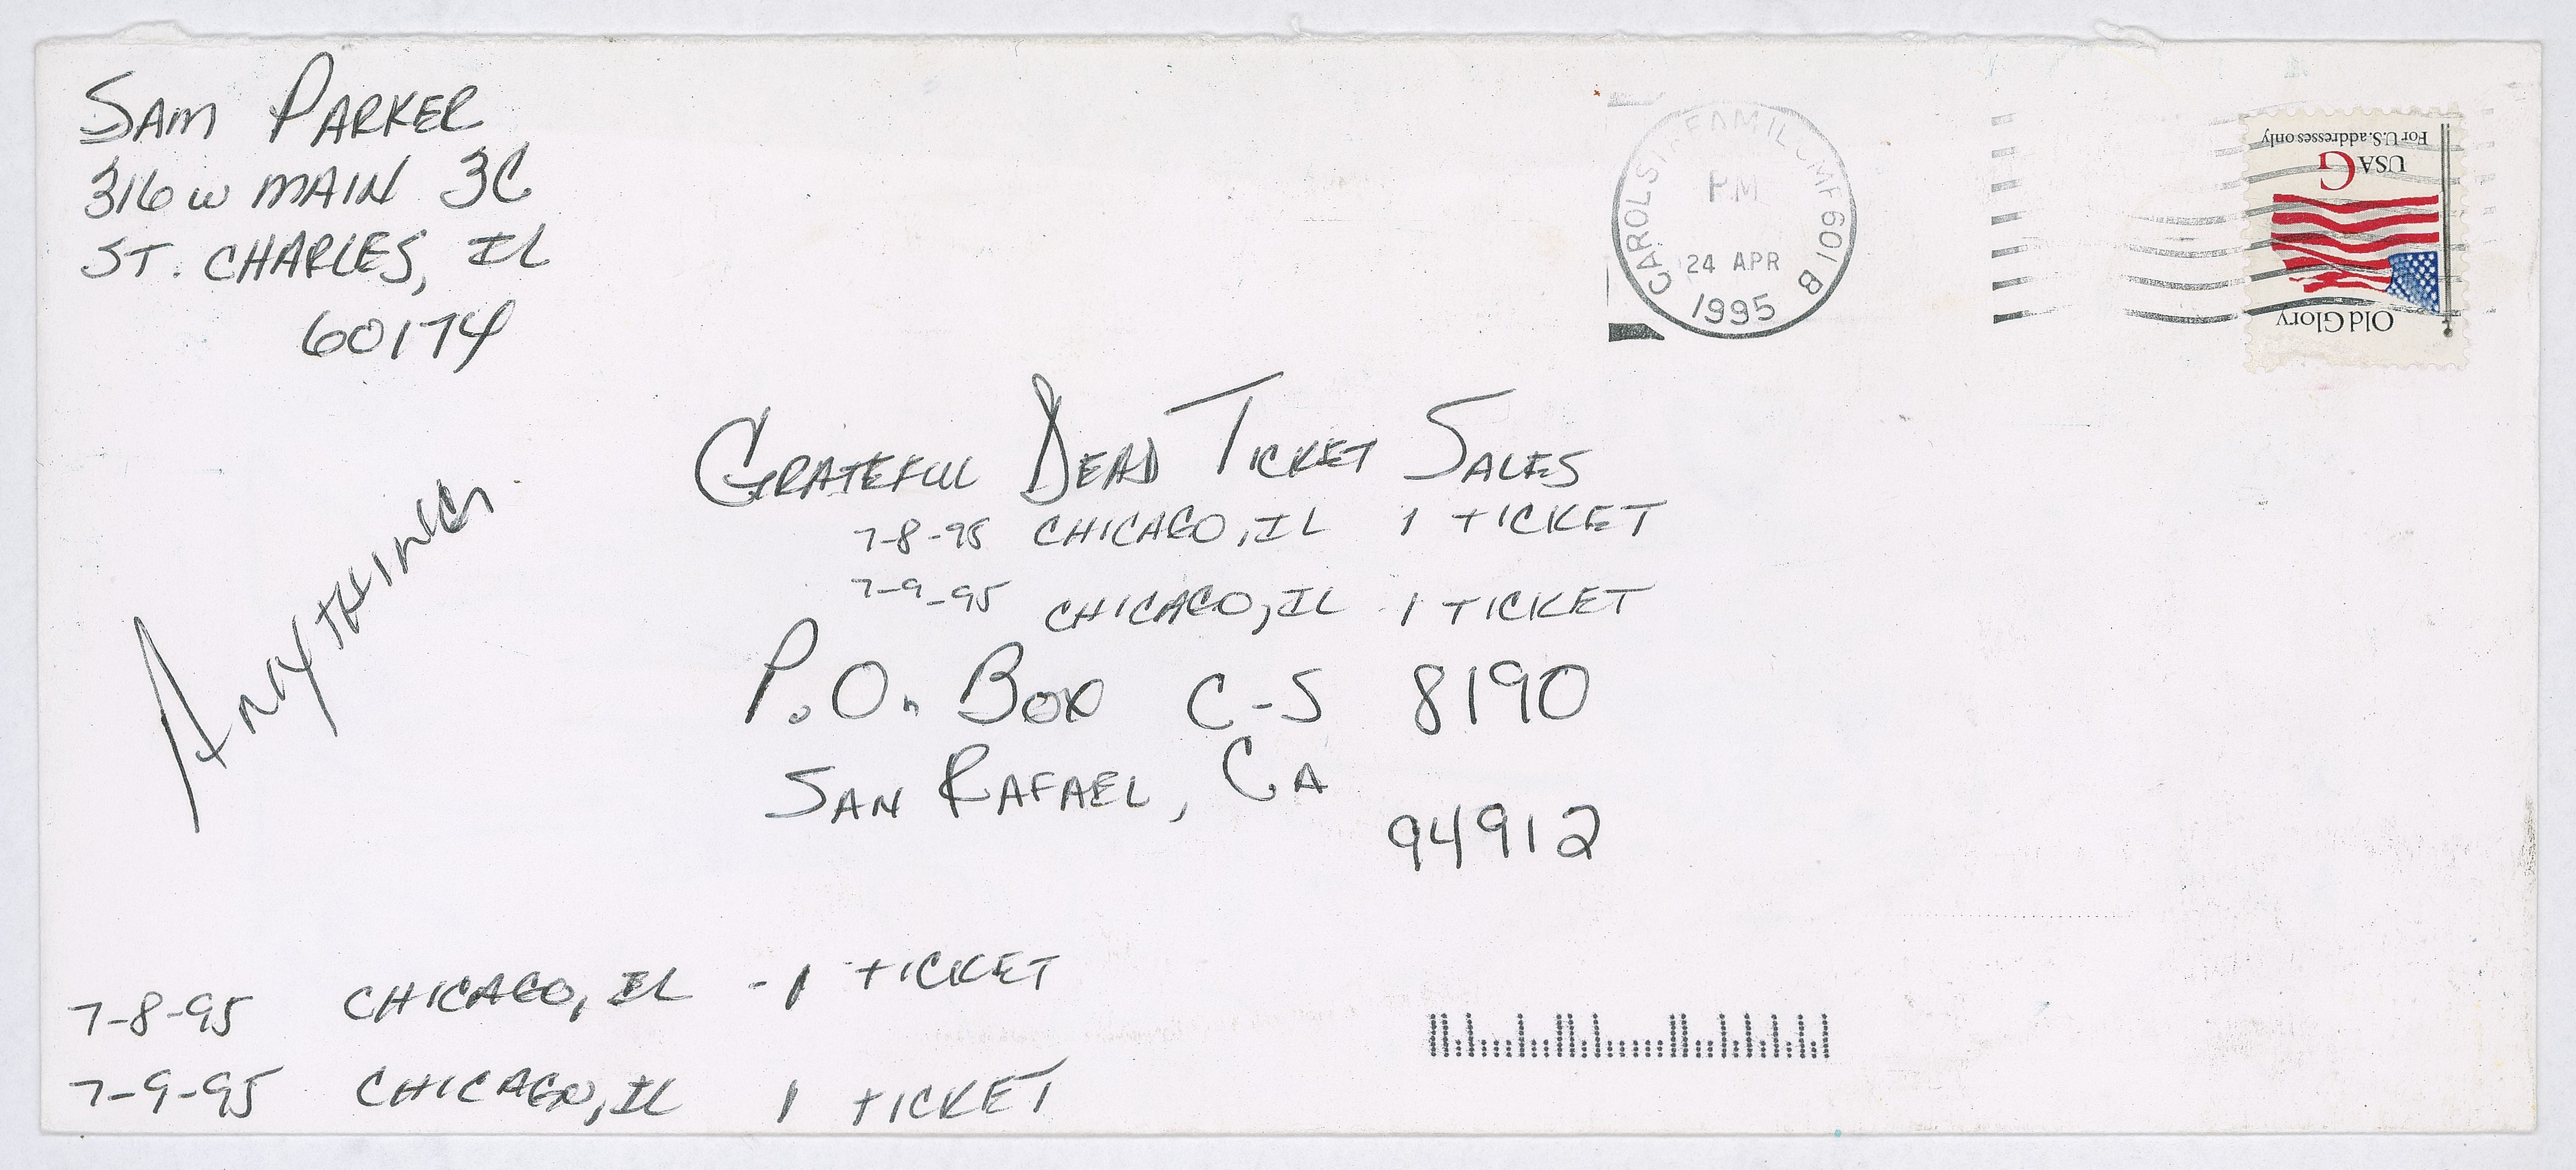 SAM PARKER
316 W MAIN 3C
ST. CHARLES, IL
60174
CAROL STREAM IL PMF 601 B
PM
24 APR
1995
For U.S. addresses only
USA G
Old Glory
ANYTHING
GRATEFUL DEAD TICKET SALES
7-8-95 CHICAGO, IL 1 TICKET
7-9-95 CHICAGO, IL - 1 TICKET
P.O. BOX C-S 8190
SAN RAFAEL, CA
94912
7-8-95 CHICAGO, IL - 1 TICKET
7-9-95 CHICAGO, IL 1 TICKET